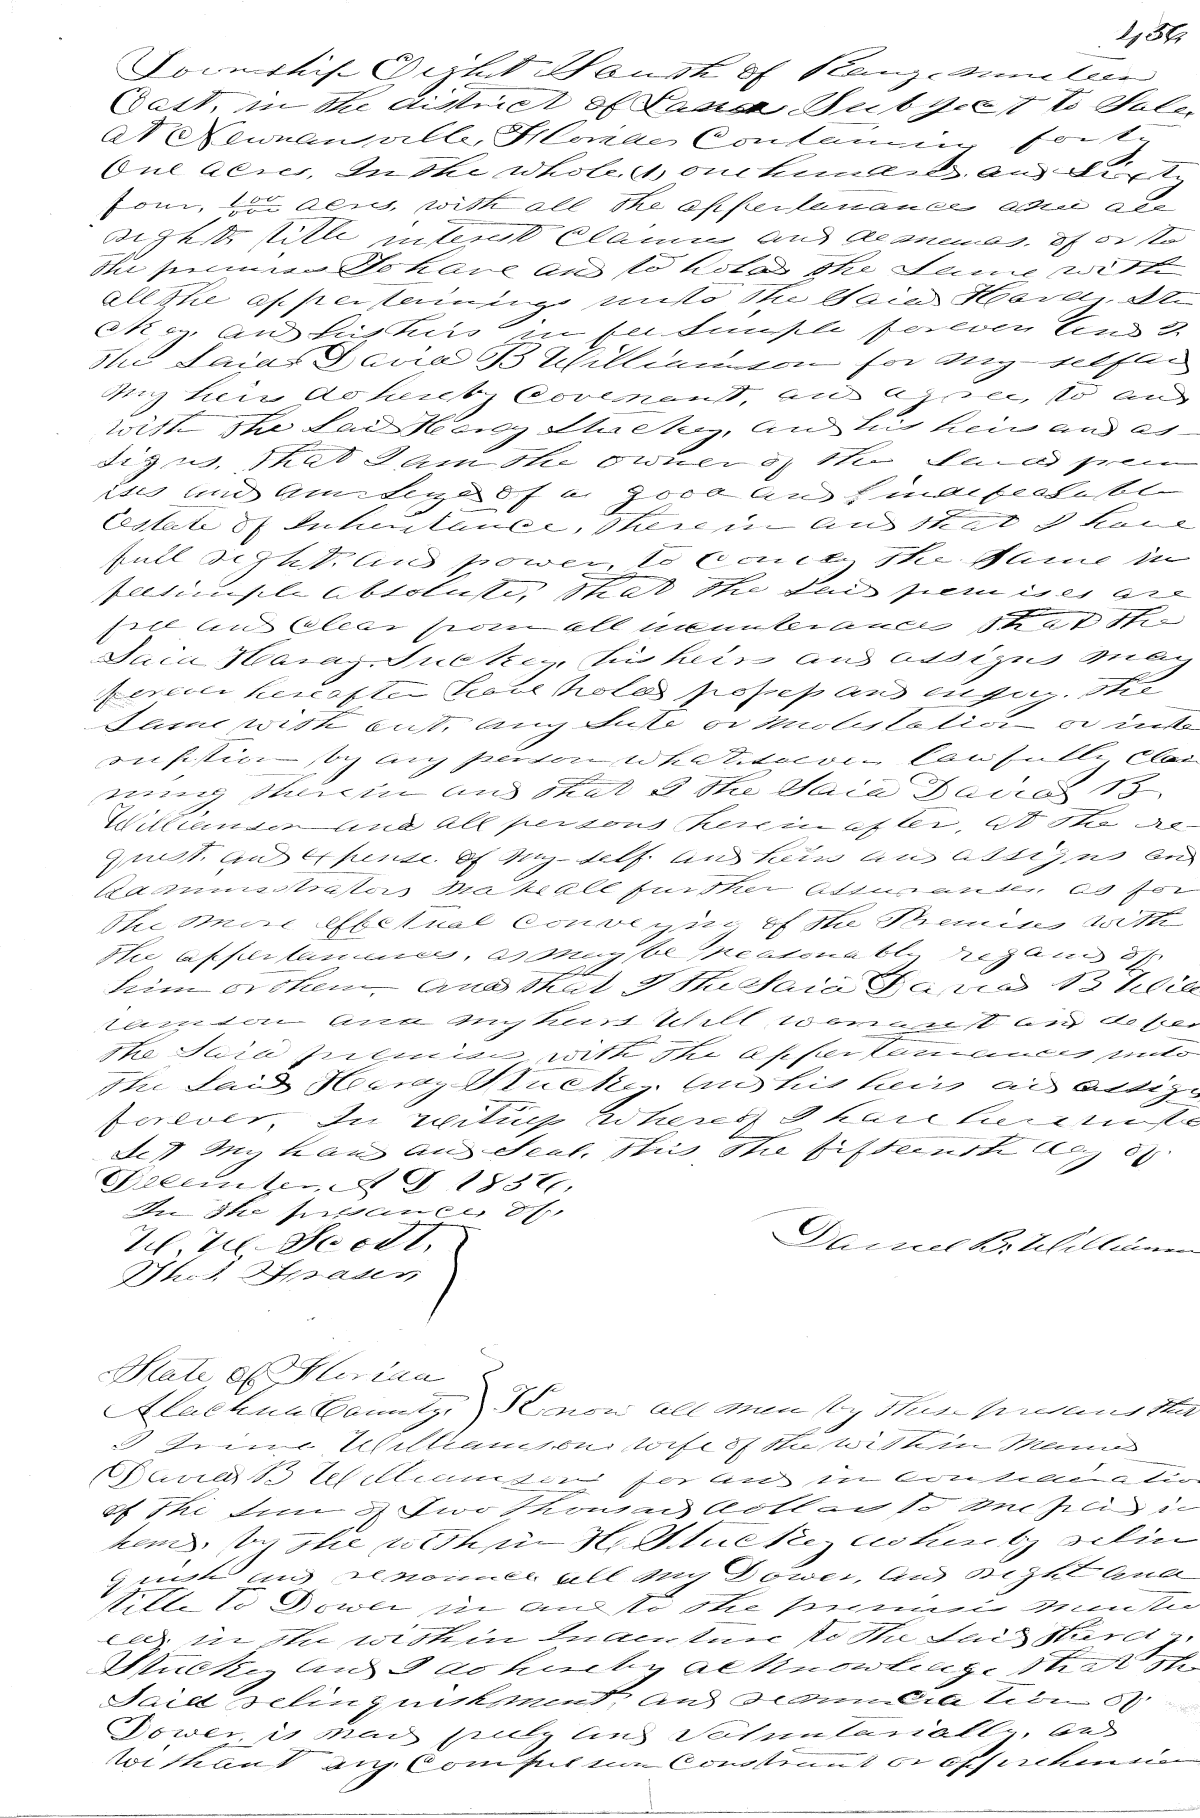 456
Township Eight South of Range nineteen
East, in the district of Land Subject to Sale,
at Newnansville, Florida Containing forty
One acres. In the whole (1) one hundred and sixty
four, 100/000 acres with all the appertanances and all
right title interest Claims and demands of or to
the premises To have and to hold the Same with
all the appertainings unto the Said Hardy Stu
ckey and his heirs in fee Simple forever And I
the Said David B Williamson for my-self and
my heirs do hereby Covenant, and agree, to and
with the Said Hardy Stuckey, and his heirs and as-
signs, that I am the owner of the Said prem
ises and am Seized of a good and indefeasable
Estate of Inheritance, therein and that I have
full right and power, to Convey the Same in
feesimple absolute, that the Said premises are
free and Clear from all incumberances that the
Said Hardy Stuckey, his heirs and assigns may
forever hereafter have hold possess and enjoy the
Same with out, any Sute or molestation or inte
ruption by any person whatsoever lawfully Clai
ming therein and that I the Said David B.
Williamson and all persons hereinafter, at the re-
quest, and expense of my-self and heirs and assigns and
Administrators make all further assurances as for
the more effectual conveying of the Premises with
the appertanances, as may be reasonably
him or them, and that I the Said David B Will
iamson and my heirs Will warrant and defen
the Said premises, with the appertanances unto
the Said Hardy Stuckey and his heirs and assigns
forever, In witness whereof I have hereunto
Set my hand and Seal, this the fifteenth day of
December, A D 1856.
In the presance of,
W. W. Scott,
Thos. Fraser,
Daniel B. Williamson
State of Florida
Alachua County, Know all men by these presans that
I Williamson wife of the within Named
David B Williamson for and in consideration
of the Sum of Two thousand dollars to me paid in
hand, by the within H. Stuckey do hereby relin
quish and renounce all my Dower, and right and
title to Dower in and to the premises mentio
ed in the within Indenture to the Said Hardy
Stuckey and I do hereby acknowledge that the
Said relinquishment, and renunciation of
Dower is mad freely and Voluntarially, and
without any Compulsion Constraint or apprehension